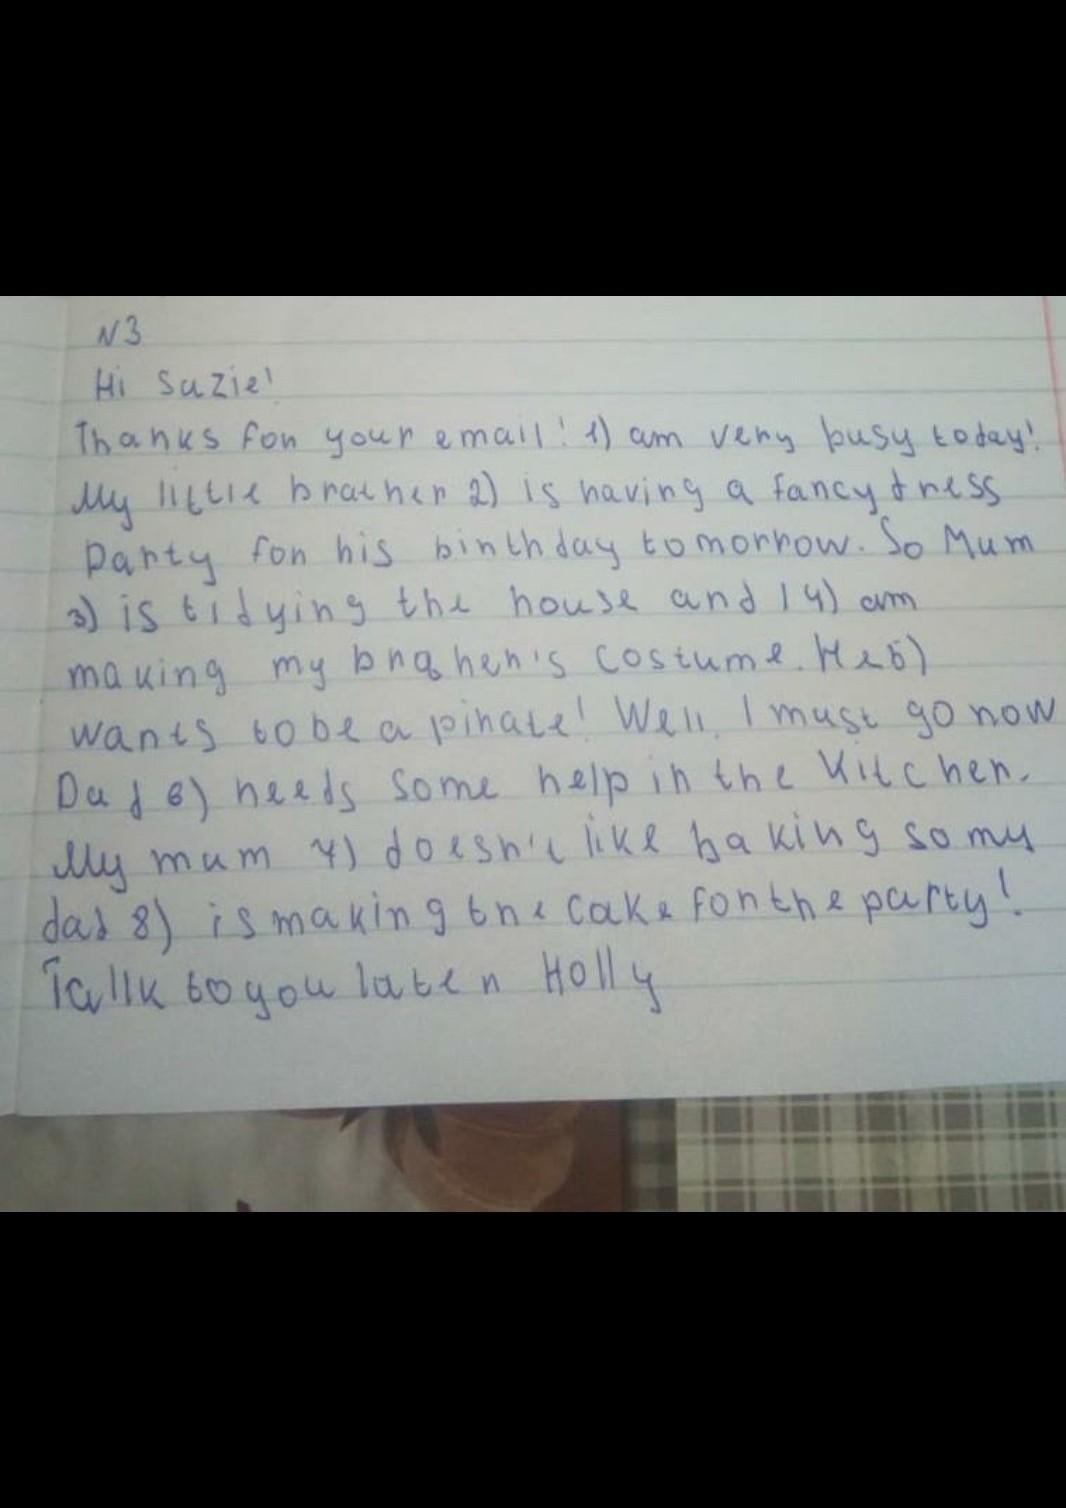 N3
Hi Suzie!
Thanks for your email! 1) am very busy today!
My little brather 2) is having a fancy dress
Party for his birthday tomorrow. So Mum
3) is tidying the house and I 4) am
making my brother's costume. He 5)
wants to be a pirate! Well, I must go now
Dad 6) needs some help in the kitchen.
My mum 7) doesn't like baking so my
dad 8) is making the cake for the party!
Tallk to you later Holly